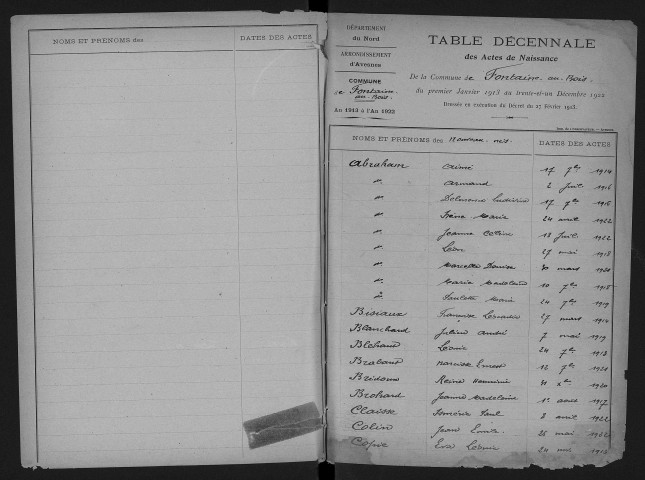 NOMS ET PRÉNOMS des
DATES DES ACTES
DÉPARTEMENT
du Nord
ARRONDISSEMENT
d'Avesnes
COMMUNE
de Fontaine-
au-Bois
An 1913 à l'An 1922
TABLE DÉCENNALE
des Actes de Naissance
De la Commune de Fontaine-au-Bois
du premier Janvier 1913 au trente-et-un Décembre 1922
Dressée en exécution du Décret du 27 Février 1913.
NOMS ET PRÉNOMS des Nouveau-nés
DATES DES ACTES
Abraham Aimé 17 7bre 1914
" Armand 2 Juil 1916
" Delmena 17 7bre 1916
" Irène Marie 24 avril 1922
" Jeanne Céline 18 Juil 1922
" Léon 27 mai 1918
" Marcelle Louise 30 mars 1920
" Maria Madeleine 10 7bre 1915
" Paulette Marie 24 7bre 1919
Bisiaux Françoise 27 mars 1914
Blanchard Julien André 7 mai 1919
Bléhaut Léonie 24 7bre 1913
Brabant Narcisse Ernest 16 7bre 1921
Bridoux Reine 31 Xbre 1920
Brohard Jeanne Madeleine 1er août 1917
Claisse Paul 8 avril 1922
Colin Jean Emile 26 mai 1922
Eva Léonie 24 mai 1913